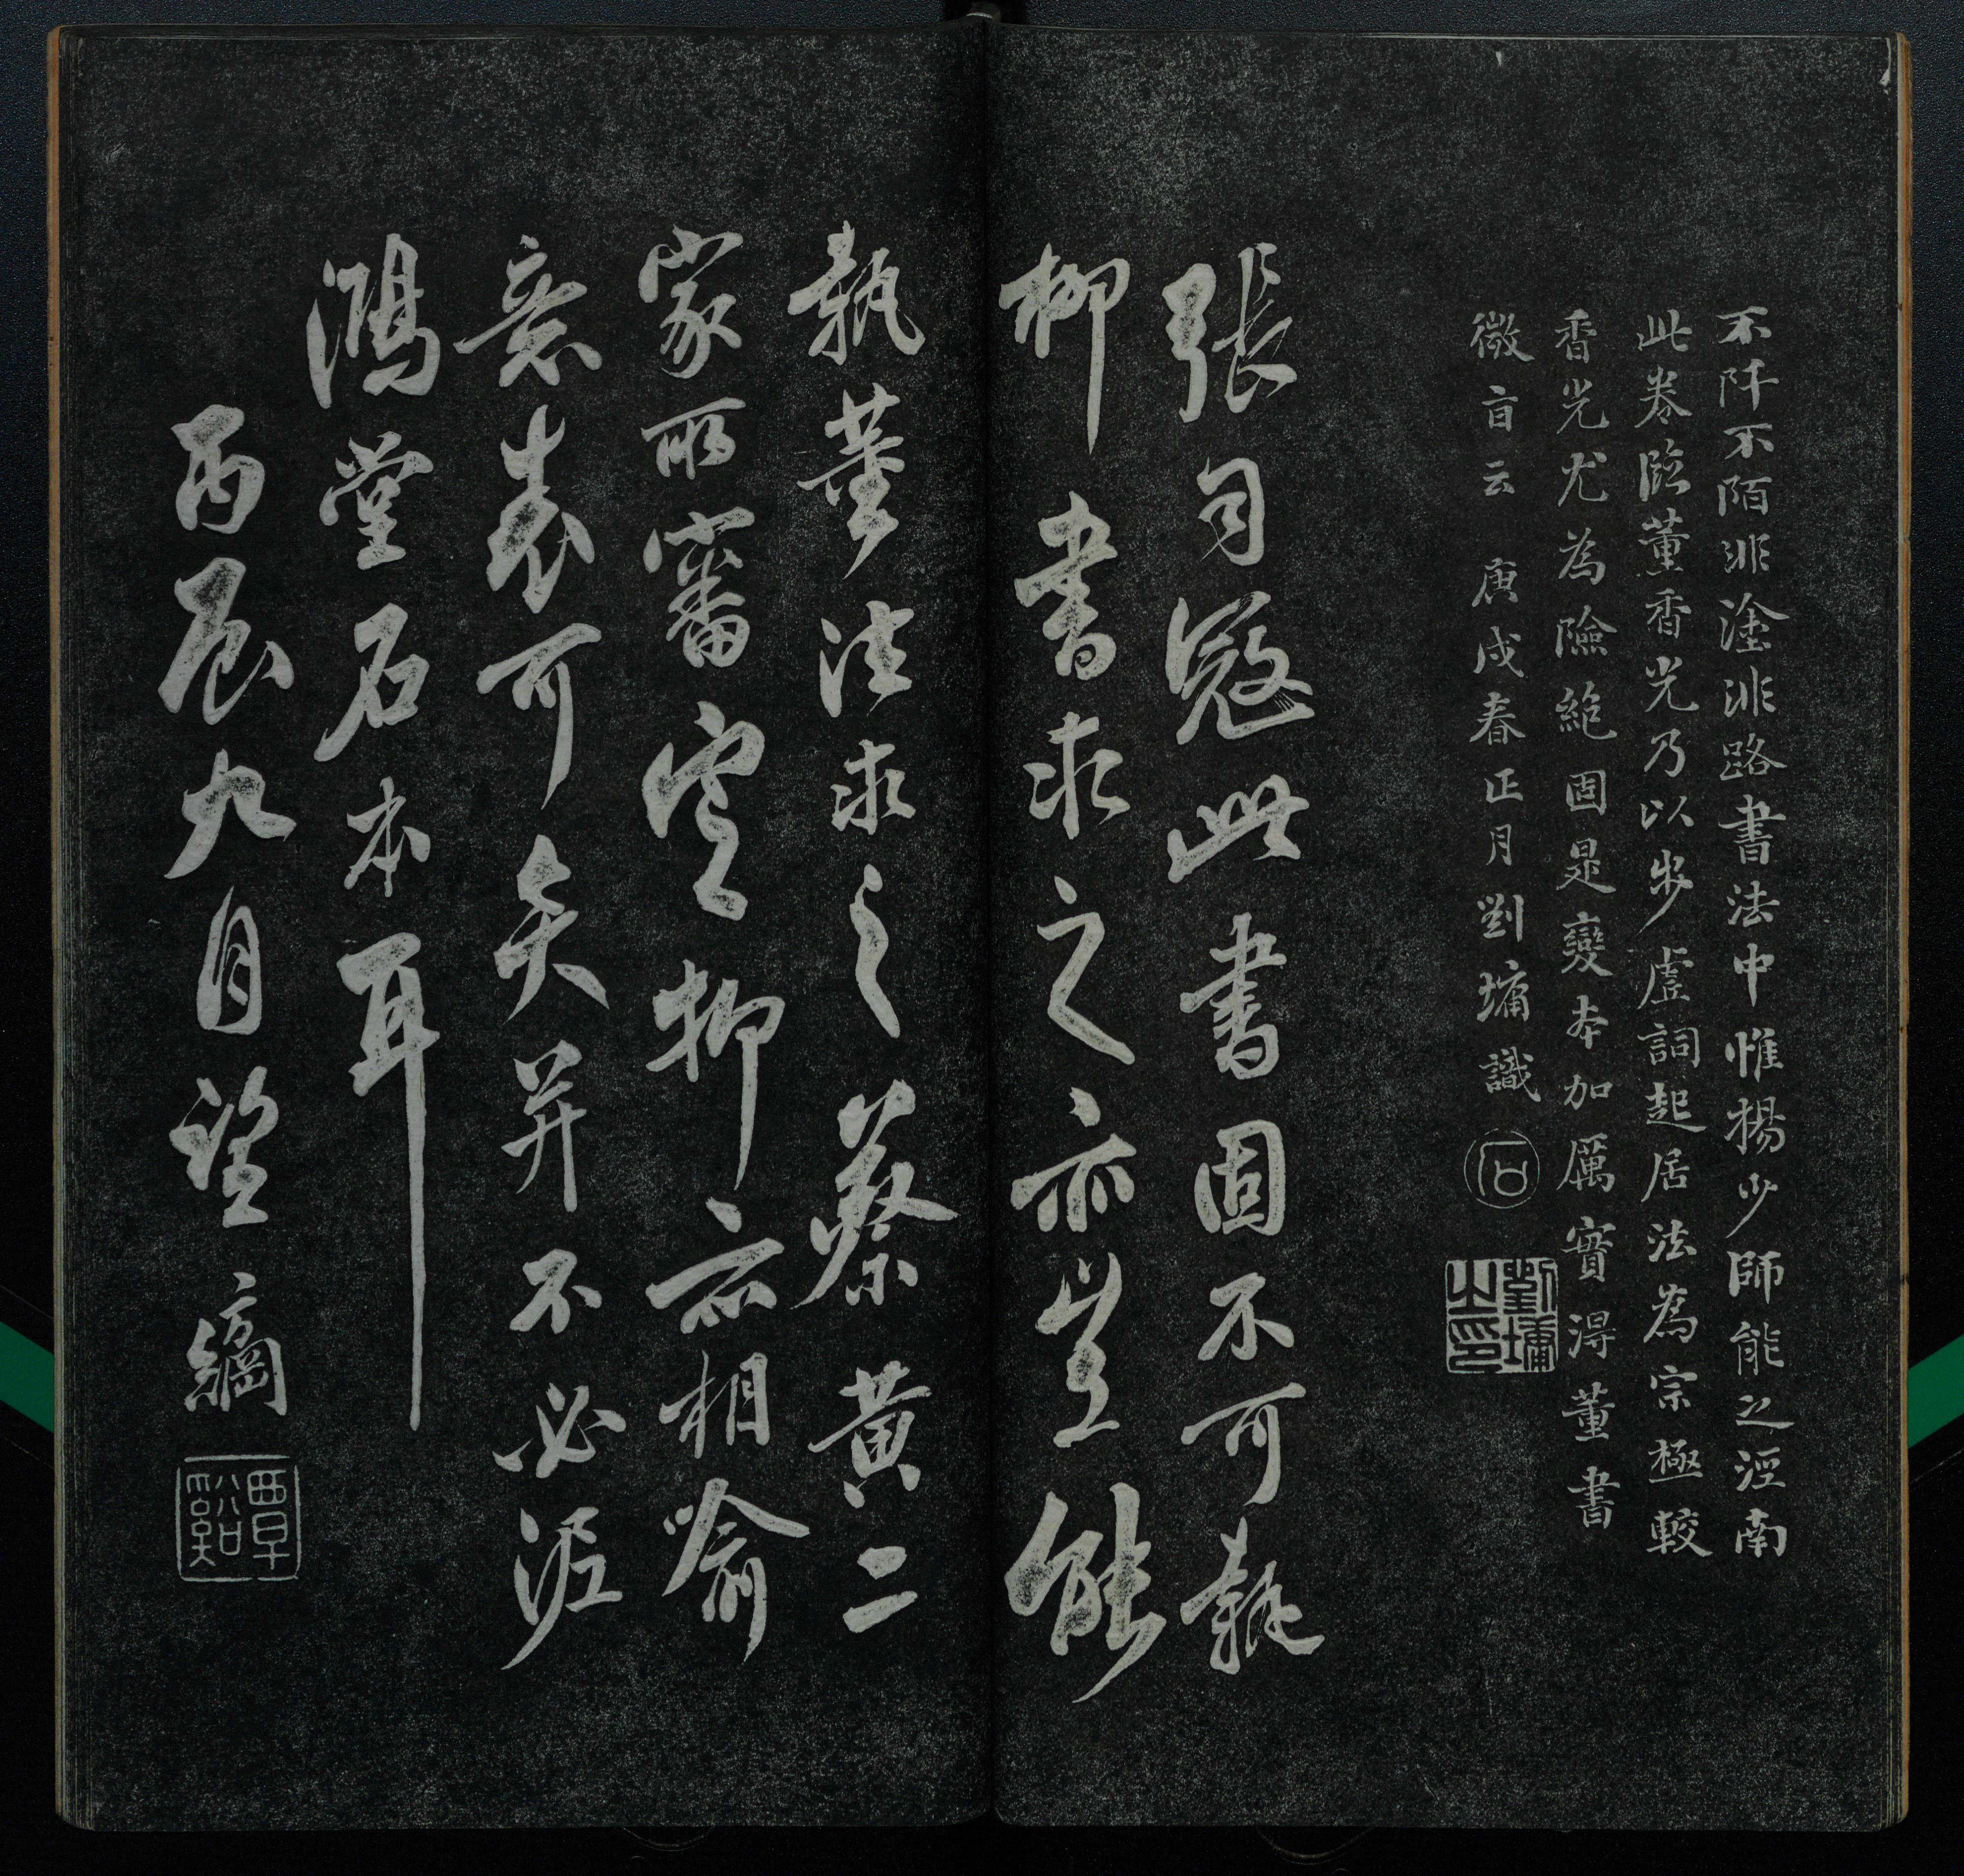 不阡不陌非塗非路書法中惟楊少師能之涇南
此卷臨董香光乃以步虛詞起居法為宗極較
香光尤為險絕固是變本加厲實得董書
微旨云 庚戌春正月劉墉識
石
劉墉之印
張司寇此書固不可執
柳書求之亦豈能
執董法求之蔡黃二
家所審定抑亦相喻
意表可矣并不必泥
鴻堂石本耳
丙辰九月望綱
覃谿